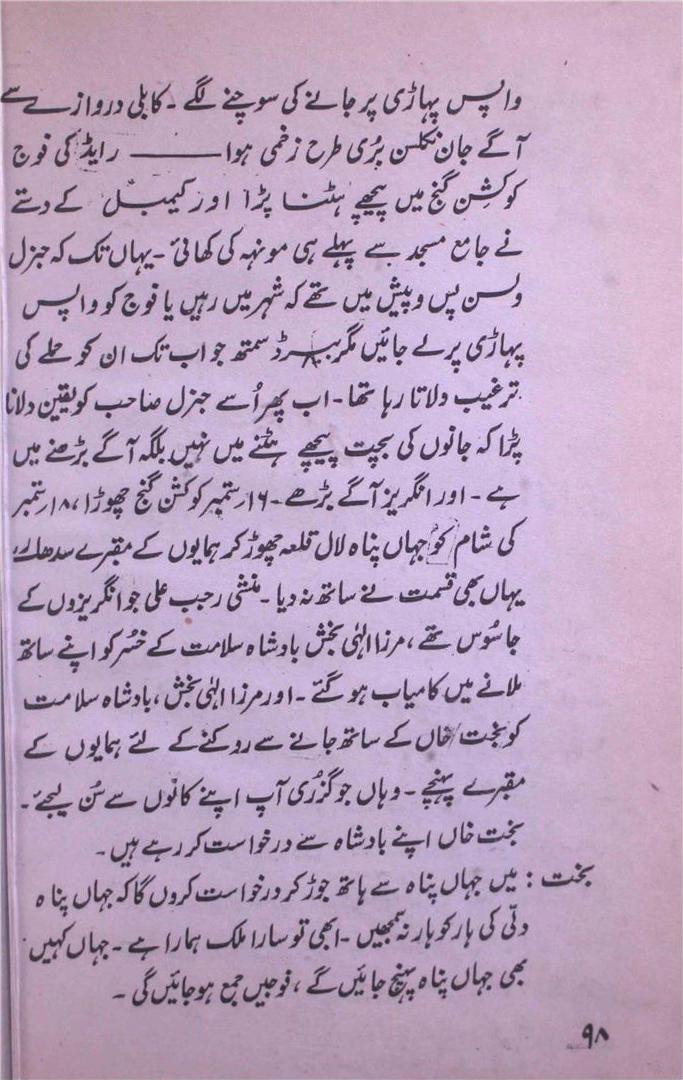 واپس پہاڑی پر جانے کی سوچنے لگے ۔ کابلی دروازے سے
آگے جان نکلسن بُری طرح زخمی ہوا ——— رایڈ کی فوج
کو کشن گنج میں پیچھے ہٹنا پڑا اور کیمبل کے دستے
نے جامع مسجد سے پہلے ہی مونہہ کی کھائی ۔ یہاں تک کہ جنرل
ولسن پس و پیش میں تھے کہ شہر میں رہیں یا فوج کو واپس
پہاڑی پر لے جائیں مگر بیرڈ سمتھ جو اب تک ان کو حملے کی
ترغیب دلاتا رہا تھا ۔ اب پھر اُسے جنرل صاحب کو یقین دلانا
پڑا کہ جانوں کی بچت پیچھے ہٹنے میں نہیں بلکہ آگے بڑھنے میں
ہے ۔ اور انگریز آگے بڑھے ۔ ۱۶ ستمبر کو کشن گنج چھوڑا ، ۱۸ ستمبر
کی شام کو جہاں پناہ لال قلعہ چھوڑ کر ہمایوں کے مقبرے سدھارے
یہاں بھی قسمت نے ساتھ نہ دیا ۔ منشی رجب علی جو انگریزوں کے
جاسُوس تھے ، مرزا الہٰی بخش بادشاہ سلامت کے خسُر کو اپنے ساتھ
ملانے میں کامیاب ہو گئے ۔ اور مرزا الہٰی بخش ، بادشاہ سلامت
کو بخت خاں کے ساتھ جانے سے روکنے کے لئے ہمایوں کے
مقبرے پہنچے ۔ وہاں جو گزُری آپ اپنے کانوں سے سُن لیجئے ۔
بخت خاں اپنے بادشاہ سے درخواست کر رہے ہیں ۔
بخت : میں جہاں پناہ سے ہاتھ جوڑ کر درخواست کروں گا کہ جہاں پناہ
دلّی کی ہار کو ہار نہ سمجھیں ۔ ابھی تو سارا ملک ہمارا ہے ۔ جہاں کہیں
بھی جہاں پناہ پہنچ جائیں گے ، فوجیں جمع ہو جائیں گی ۔
۹۸